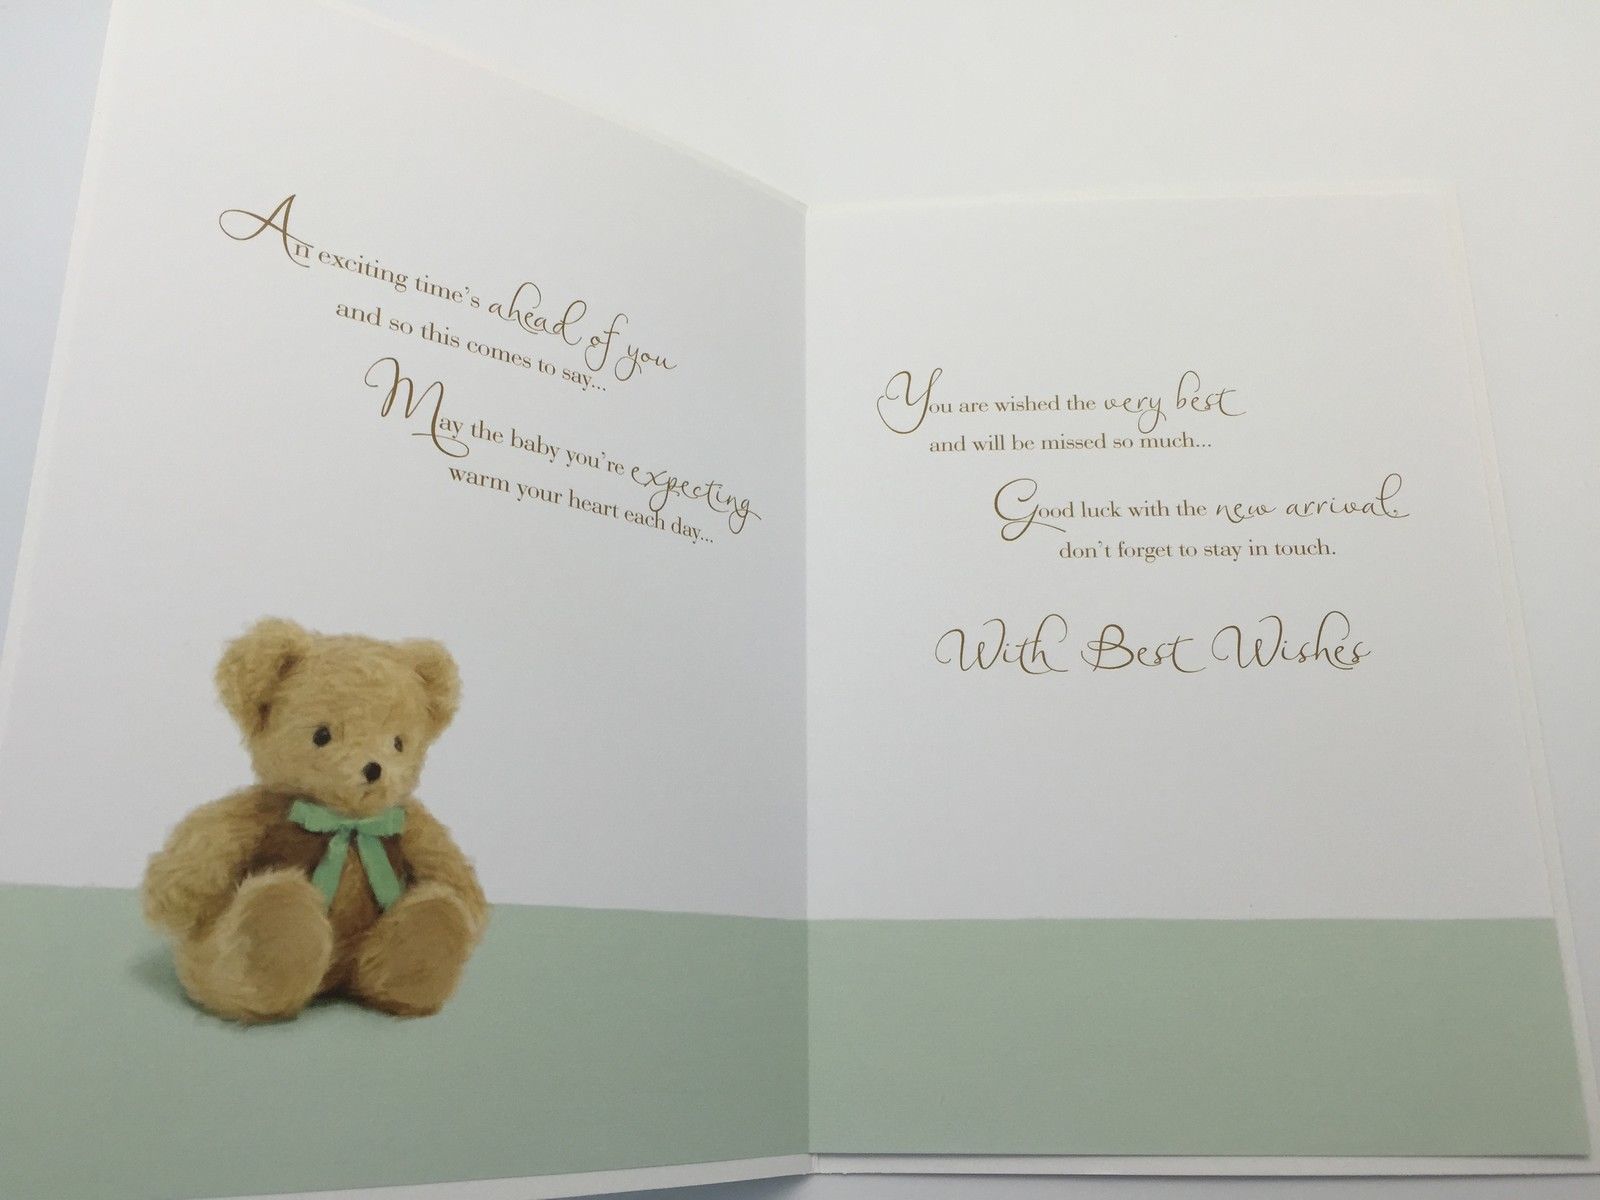 An exciting time's ahead of you
and so this comes to say...
May the baby you're expecting
warm your heart each day...
You are wished the very best
and will be missed so much...
Good luck with the new arrival,
don't forget to stay in touch.
With Best Wishes